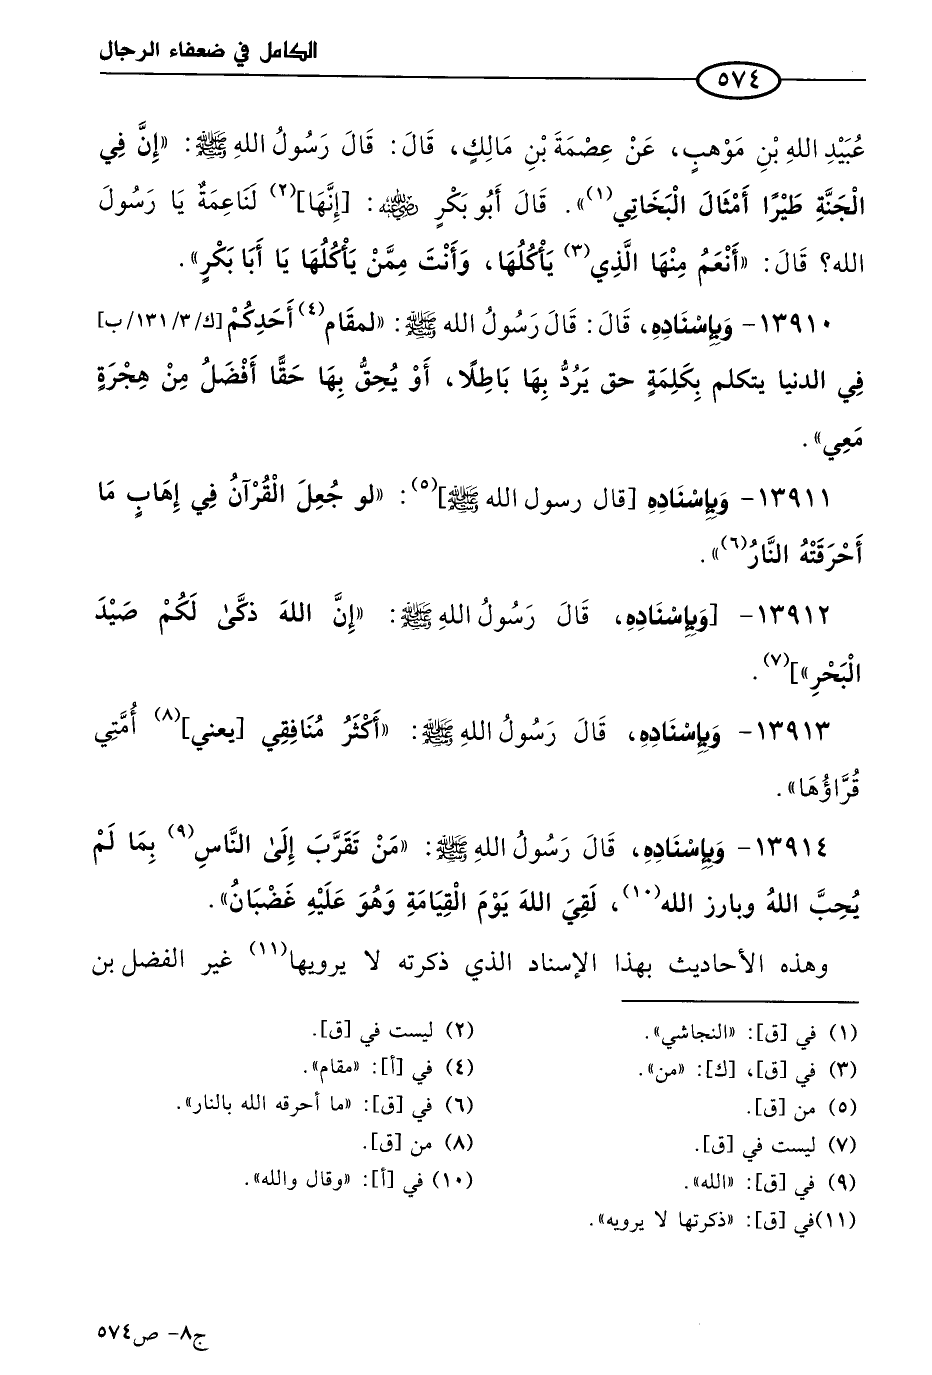 الكامل في ضعفاء الرجال
٥٧٤
عُبَيْدِ اللهِ بْنِ مَوْهبٍ، عَنْ عِصْمَةَ بْنِ مَالِكٍ، قَالَ: قَالَ رَسُولُ اللهِ ﷺ: «إِنَّ فِي
الْجَنَّةِ طَيْرًا أَمْثَالَ الْبَخَاتِي(١)». قَالَ أَبُو بَكْرٍ رضي الله عنه: [إِنَّهَا](٢) لَنَاعِمَةٌ يَا رَسُولَ
الله؟ قَالَ: «أَنْعَمُ مِنْهَا الَّذِي(٣) يَأْكُلُهَا، وَأَنْتَ مِمَّنْ يَأْكُلُهَا يَا أَبَا بَكْرٍ».
١٣٩١٠- وَبِإِسْنَادِهِ، قَالَ: قَالَ رَسُولُ الله ﷺ: «لمقَام(٤) أَحَدِكُمْ [ك/٣/١٣١/ب]
فِي الدنيا يتكلم بِكَلِمَةٍ حق يَرُدُّ بِهَا بَاطِلًا، أَوْ يُحِقُّ بِهَا حَقًّا أَفْضَلُ مِنْ هِجْرَةٍ
مَعِي».
١٣٩١١- وَبِإِسْنَادِهِ [قال رسول الله ﷺ](٥): «لو جُعِلَ الْقُرْآنُ فِي إِهَابٍ مَا
أَحْرَقَتْهُ النَّارُ(٦)».
١٣٩١٢- [وَبِإِسْنَادِهِ، قَالَ رَسُولُ اللهِ ﷺ: «إِنَّ اللهَ ذكَّىٰ لَكُمْ صَيْدَ
الْبَحْرِ»](٧).
١٣٩١٣- وَبِإِسْنَادِهِ، قَالَ رَسُولُ اللهِ ﷺ: «أَكْثَرُ مُنَافِقِي [يعني](٨) أُمَّتِي
قُرَّاؤُهَا».
١٣٩١٤- وَبِإِسْنَادِهِ، قَالَ رَسُولُ اللهِ ﷺ: «مَنْ تَقَرَّبَ إِلَىٰ النَّاسِ(٩) بِمَا لَمْ
يُحِبَّ اللهُ وبارز الله(١٠)، لَقِيَ اللهَ يَوْمَ الْقِيَامَةِ وَهُوَ عَلَيْهِ غَضْبَانُ».
وهذه الأحاديث بهذا الإسناد الذي ذكرته لا يرويها(١١) غير الفضل بن
(١) في [ق]: «النجاشي».
(٢) ليست في [ق].
(٣) في [ق]، [ك]: «من».
(٤) في [أ]: «مقام».
(٥) من [ق].
(٦) في [ق]: «ما أحرقه الله بالنار».
(٧) ليست في [ق].
(٨) من [ق].
(٩) في [ق]: «الله».
(١٠) في [أ]: «وقال والله».
(١١) في [ق]: «ذكرتها لا يرويه».
ج٨- ص٥٧٤